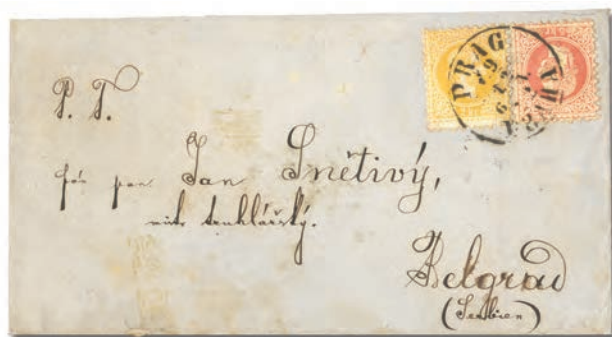 PRAG
PRAHA
P. T.
pan Jan Snětivý,
Belgrad
(Serbien)